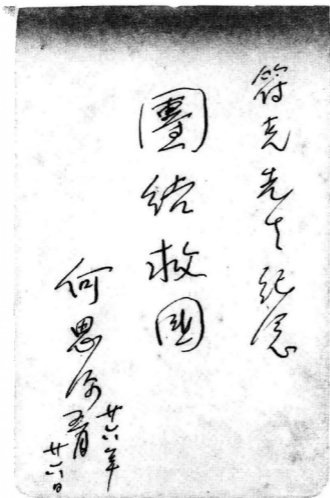 符克先生紀念
團結救國
何思源
廿六年
五月
廿六日